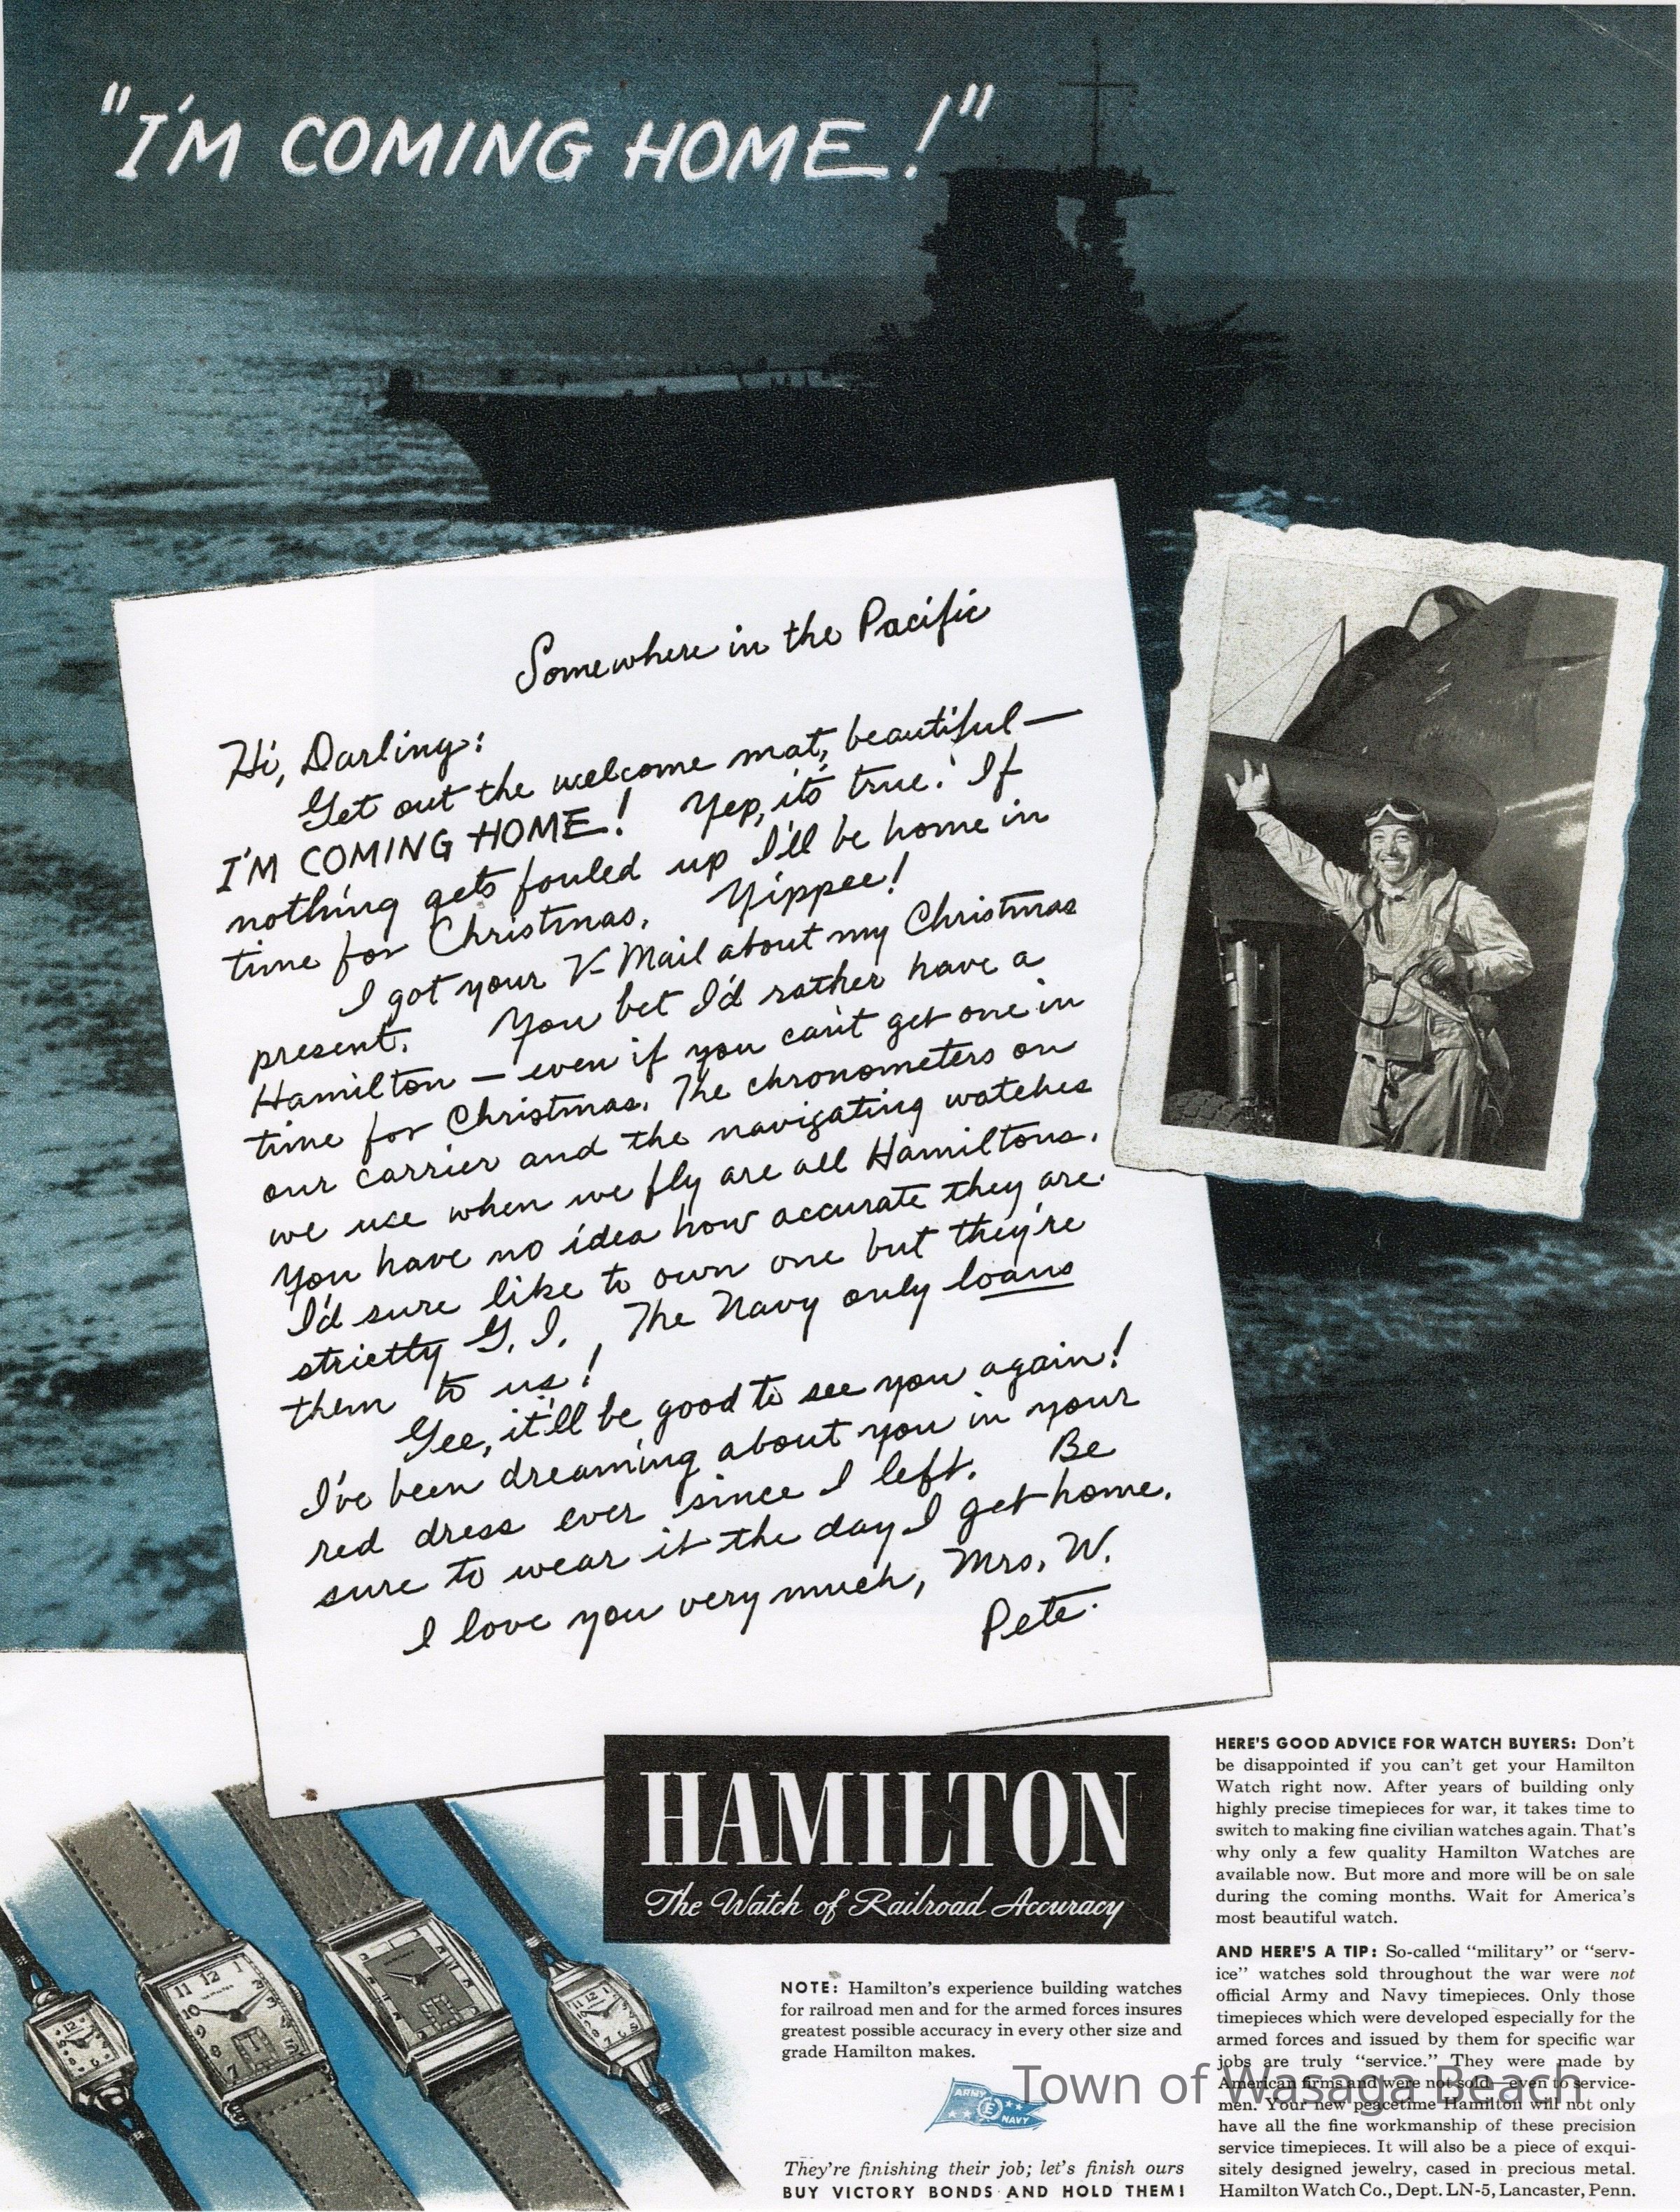 "I'M COMING HOME!"
Somewhere in the Pacific
Hi, Darling:
Get out the welcome mat, beautiful —
I'M COMING HOME! Yep, it's true! If
nothing gets fouled up I'll be home in
time for Christmas. Yippee!
I got your V-Mail about my Christmas
present. You bet I'd rather have a
Hamilton — even if you can't get one in
time for Christmas. The chronometers on
our carrier and the navigating watches
we use when we fly are all Hamiltons.
You have no idea how accurate they are.
I'd sure like to own one but they're
strictly G. I. The Navy only loans
them to us!
Gee, it'll be good to see you again!
I've been dreaming about you in your
red dress ever since I left. Be
sure to wear it the day I get home.
I love you very much, Mrs. W.
Pete.
HAMILTON
The Watch of Railroad Accuracy
NOTE: Hamilton's experience building watches
for railroad men and for the armed forces insures
greatest possible accuracy in every other size and
grade Hamilton makes.
ARMY
E
NAVY
They're finishing their job; let's finish ours
BUY VICTORY BONDS AND HOLD THEM!
HERE'S GOOD ADVICE FOR WATCH BUYERS: Don't
be disappointed if you can't get your Hamilton
Watch right now. After years of building only
highly precise timepieces for war, it takes time to
switch to making fine civilian watches again. That's
why only a few quality Hamilton Watches are
available now. But more and more will be on sale
during the coming months. Wait for America's
most beautiful watch.
AND HERE'S A TIP: So-called "military" or "serv-
ice" watches sold throughout the war were not
official Army and Navy timepieces. Only those
timepieces which were developed especially for the
armed forces and issued by them for specific war
jobs are truly "service." They were made by
American firms and were not sold—even to service-
men. Your new peacetime Hamilton will not only
have all the fine workmanship of these precision
service timepieces. It will also be a piece of exqui-
sitely designed jewelry, cased in precious metal.
Hamilton Watch Co., Dept. LN-5, Lancaster, Penn.
Town of Wasaga Beach